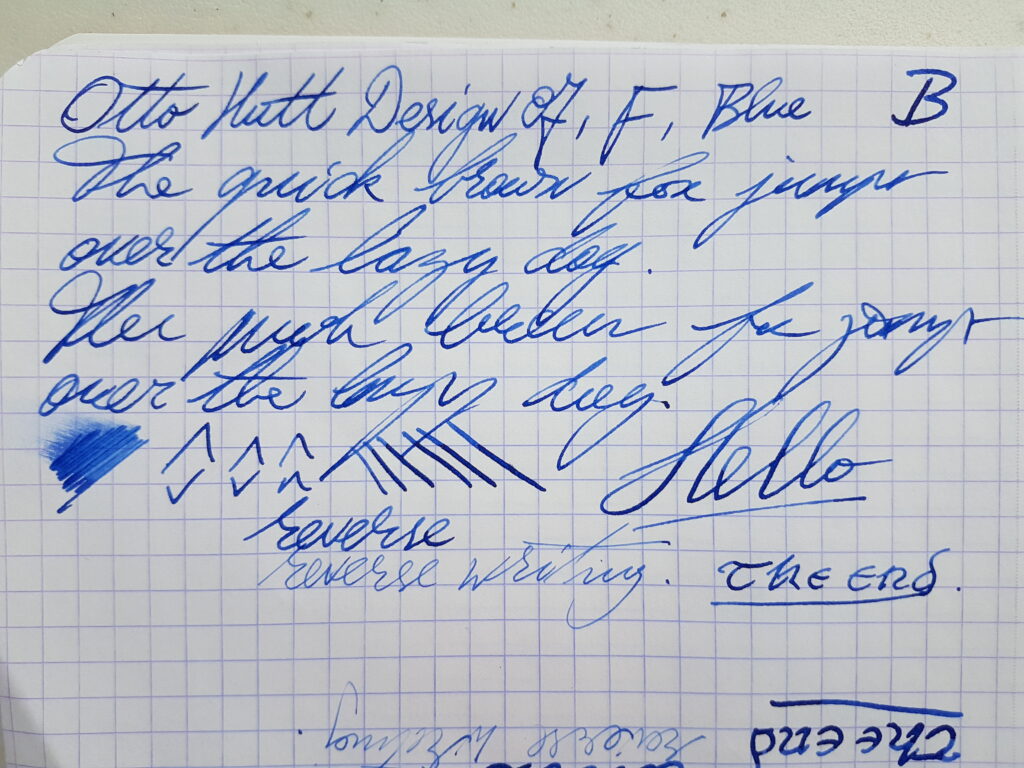 Otto Hutt Design 07, F, Blue B
The quick brown fox jumps
over the lazy dog.
over the lazy dog.
Hello
reverse
reverse writing.
THE END.
the end
reverse writing.